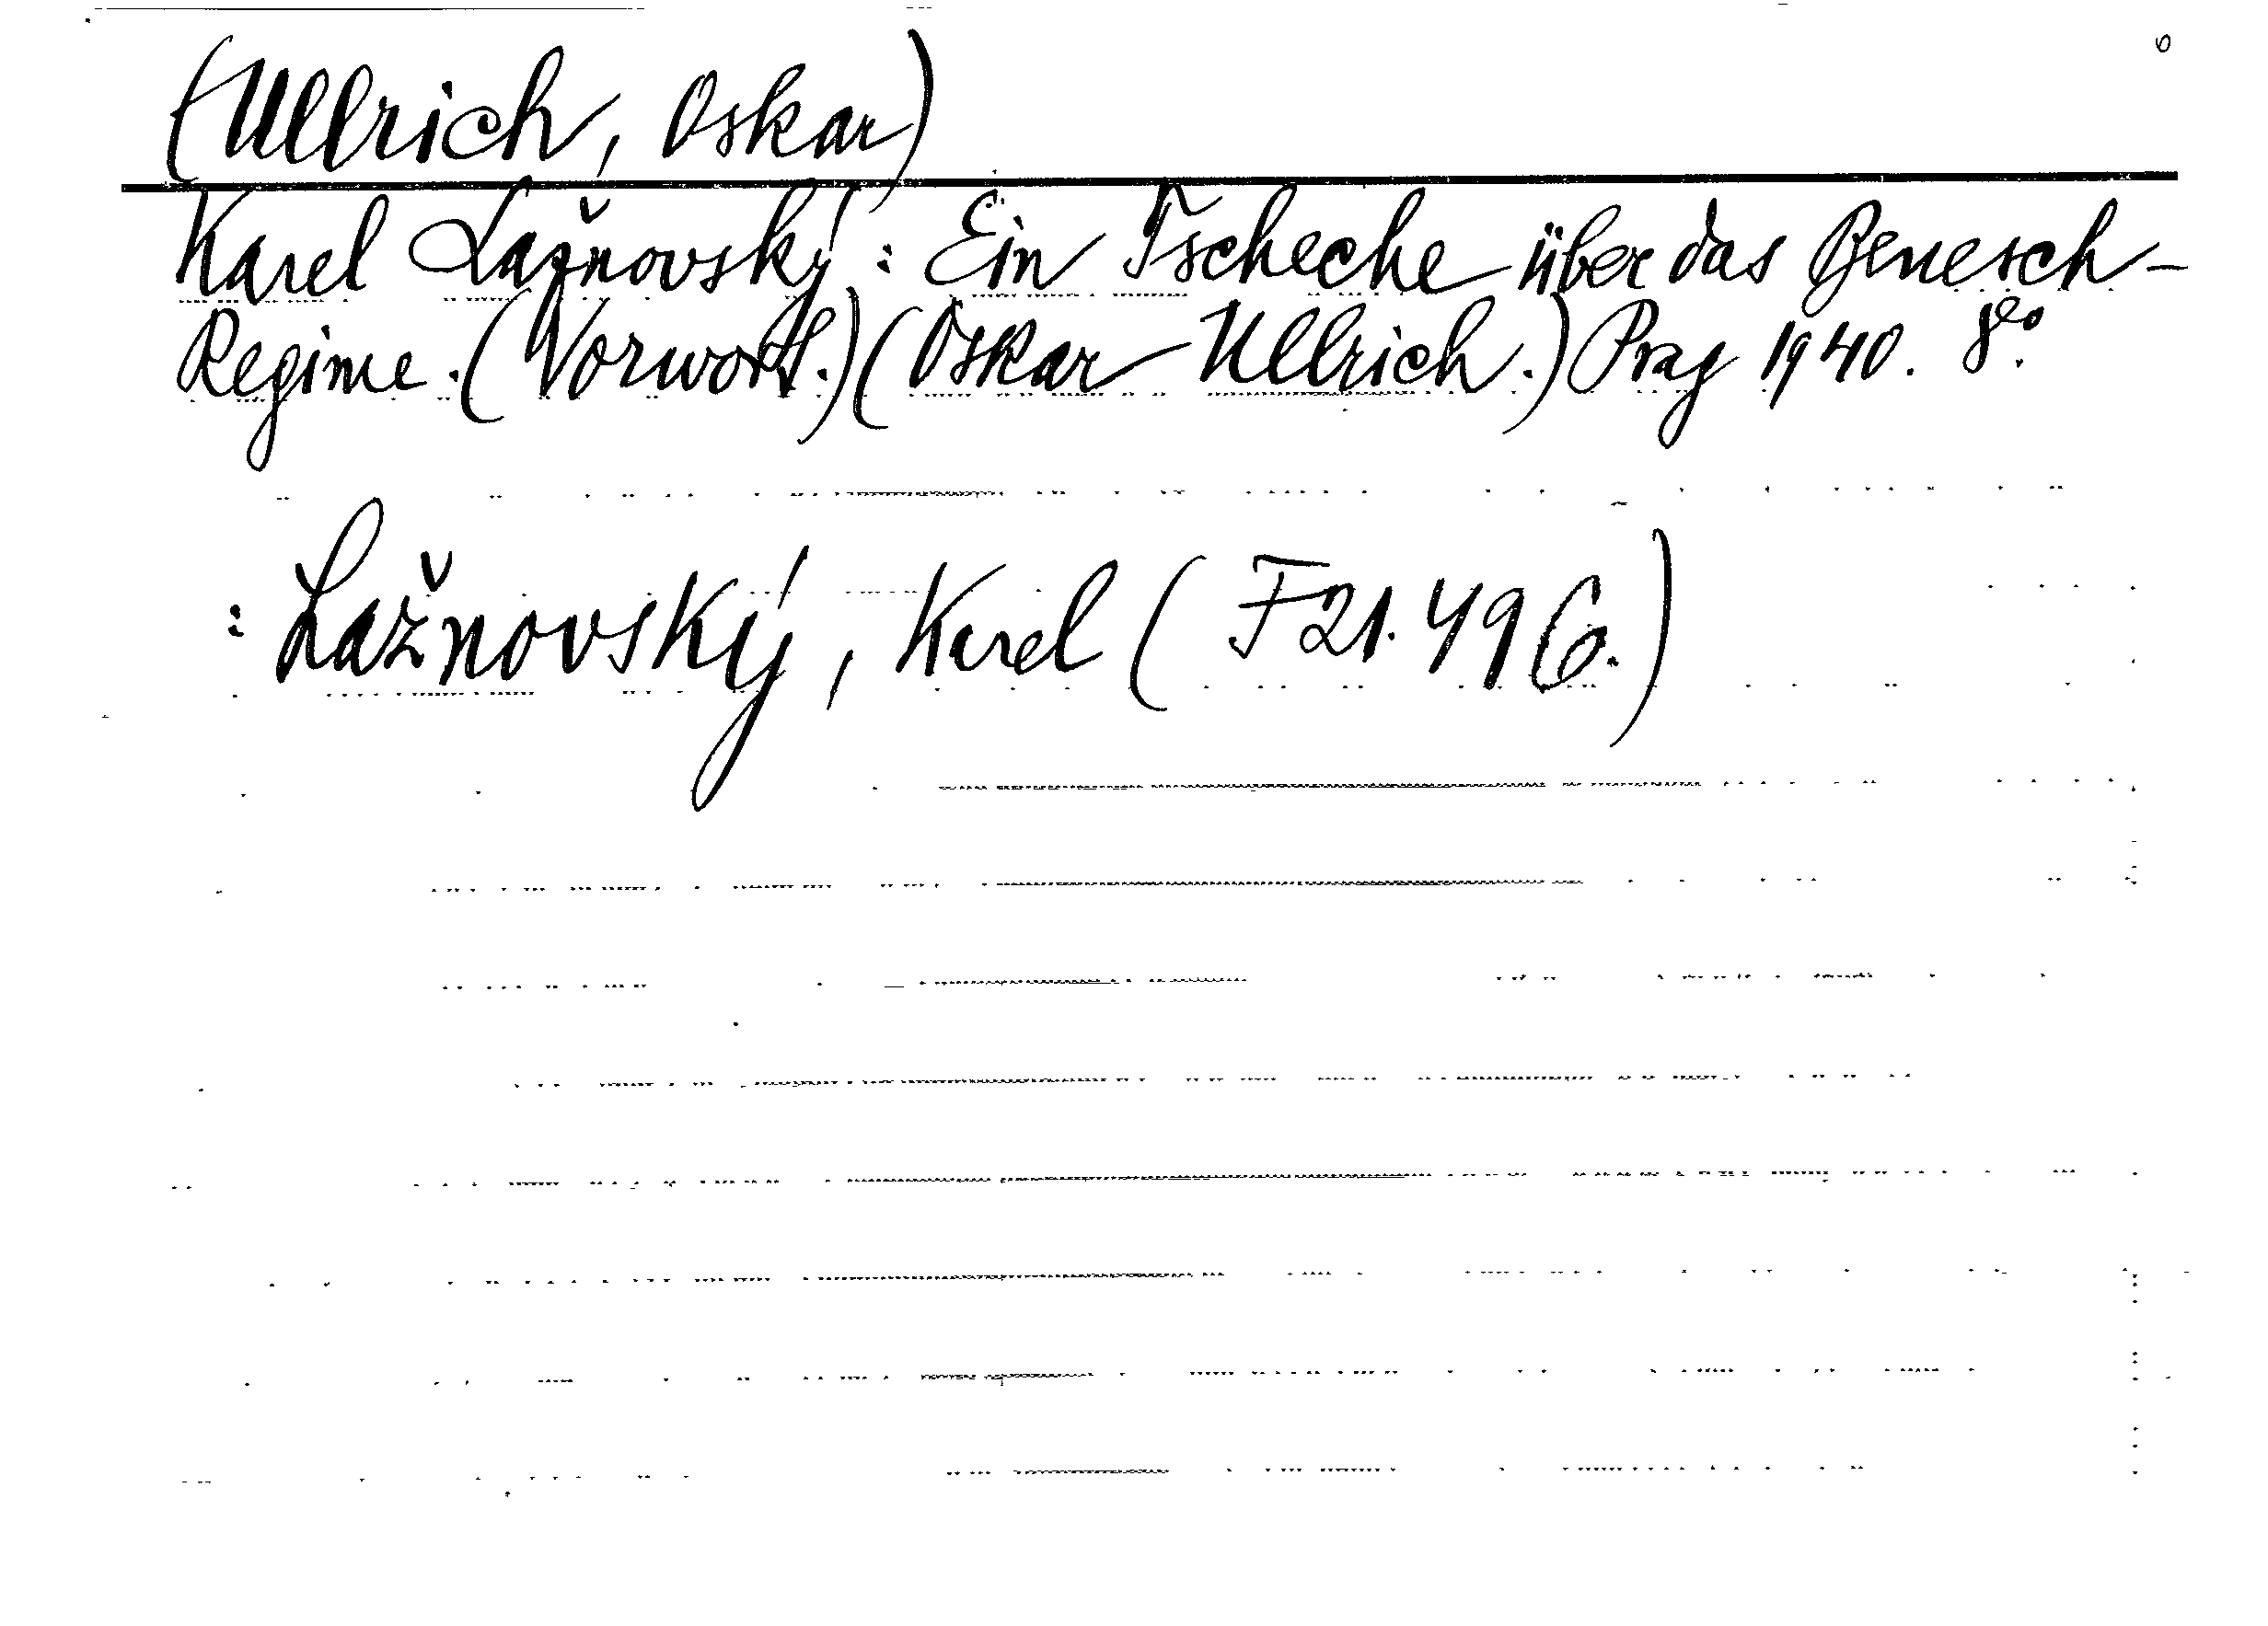 (Ullrich, Oskar)
Karel Lažnovský: Ein Tscheche über das Benesch-
Regime. (Vorwort.) (Oskar Ullrich.) Prag 1940. 8°.
: Lažnovský, Karel (F21.496.)